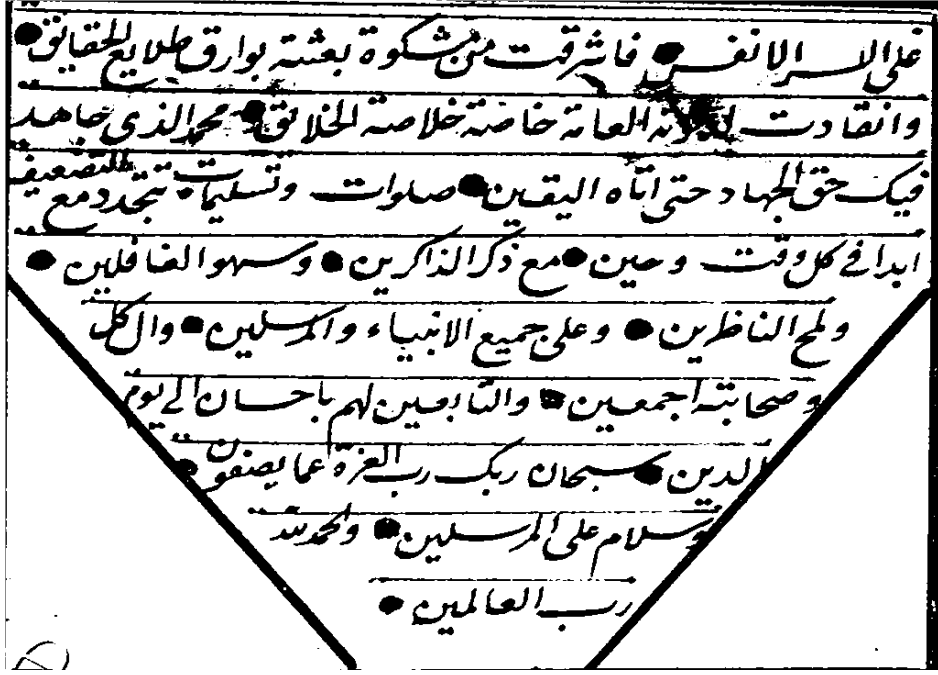 على السر الانفس ● فاشرقت من مشكوة بعثته بوارق طلايع الحقايق ●
وانقادت العامة خاصته خلاصته الخلائق ● محمد الذي جاهد
فيك حق الجهاد حتى اتاه اليقين ● صلوات وتسليمات تتجدد مع التضعيف
ابدا في كل وقت وحين ● مع ذكر الذاكرين ● وسهو الغافلين ●
ولمح الناظرين ● وعلى جميع الانبياء والمرسلين ● وال كل
وصحابته اجمعين ● والتابعين لهم باحسان الى يوم
الدين ● سبحان ربك رب العزة عما يصفون ●
وسلام على المرسلين ● والحمد لله
رب العالمين ●